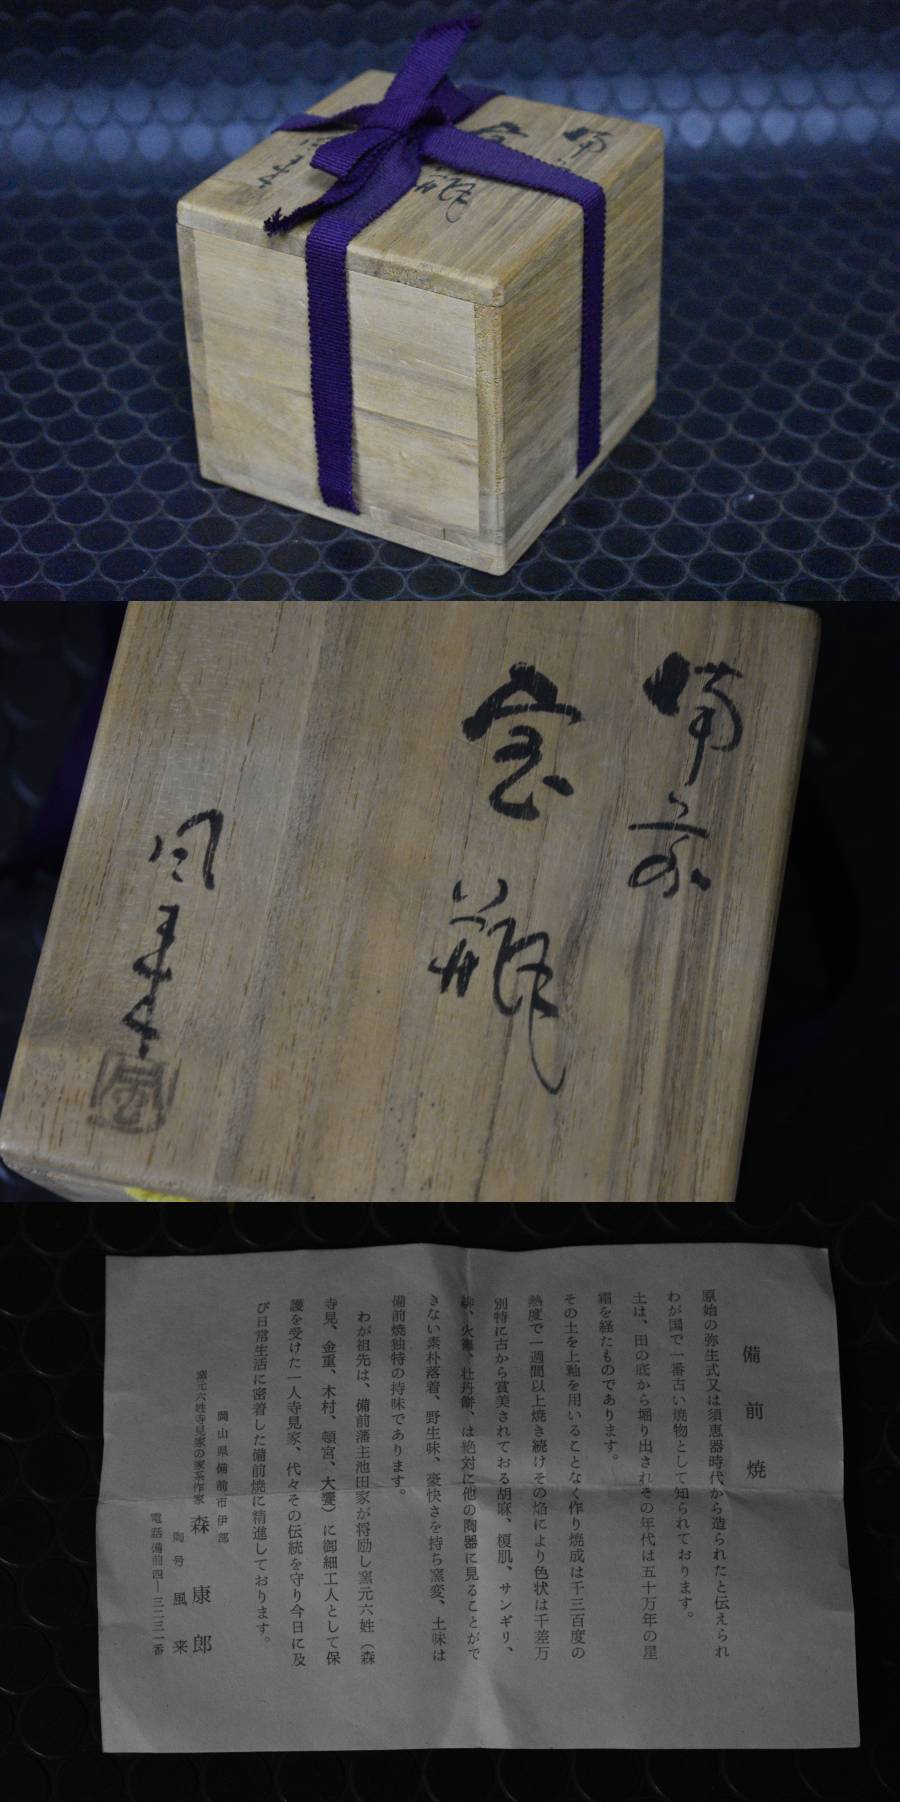 備前
宝瓶
風来
備前焼
原始の弥生式又は須恵器時代から造られたと伝えられ
わが国で一番古い焼物として知られております。
土は、田の底から堀り出されその年代は五十万年の星
霜を経たものであります。
その土を上釉を用いることなく作り焼成は千三百度の
熱度で一週間以上焼き続けその焔により色状は千差万
別特に古から賞美されておる胡麻、榎肌、サンギリ、
緋、火襷、牡丹餅、は絶対に他の陶器に見ることがで
きない素朴落着、野生味、豪快さを持ち窯変、土味は
備前焼独特の持味であります。
わが祖先は、備前藩主池田家が将励し窯元六姓（森
寺見、金重、木村、頓宮、大饗）に御細工人として保
護を受けた一人寺見家、代々その伝統を守り今日に及
び日常生活に密着した備前焼に精進しております。
岡山県備前市伊部
窯元六姓寺見家の家系作家 森康郎
陶号 風来
電話備前四ー三二三一番